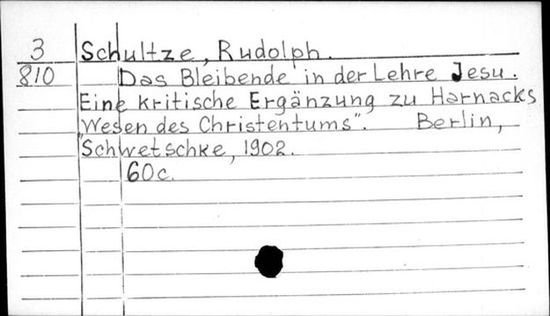 3 Schultze, Rudolph.
810 Das Bleibende in der Lehre Jesu.
Eine kritische Ergänzung zu Harnacks
"Wesen des Christentums". Berlin,
Schwetschke, 1902.
60c.